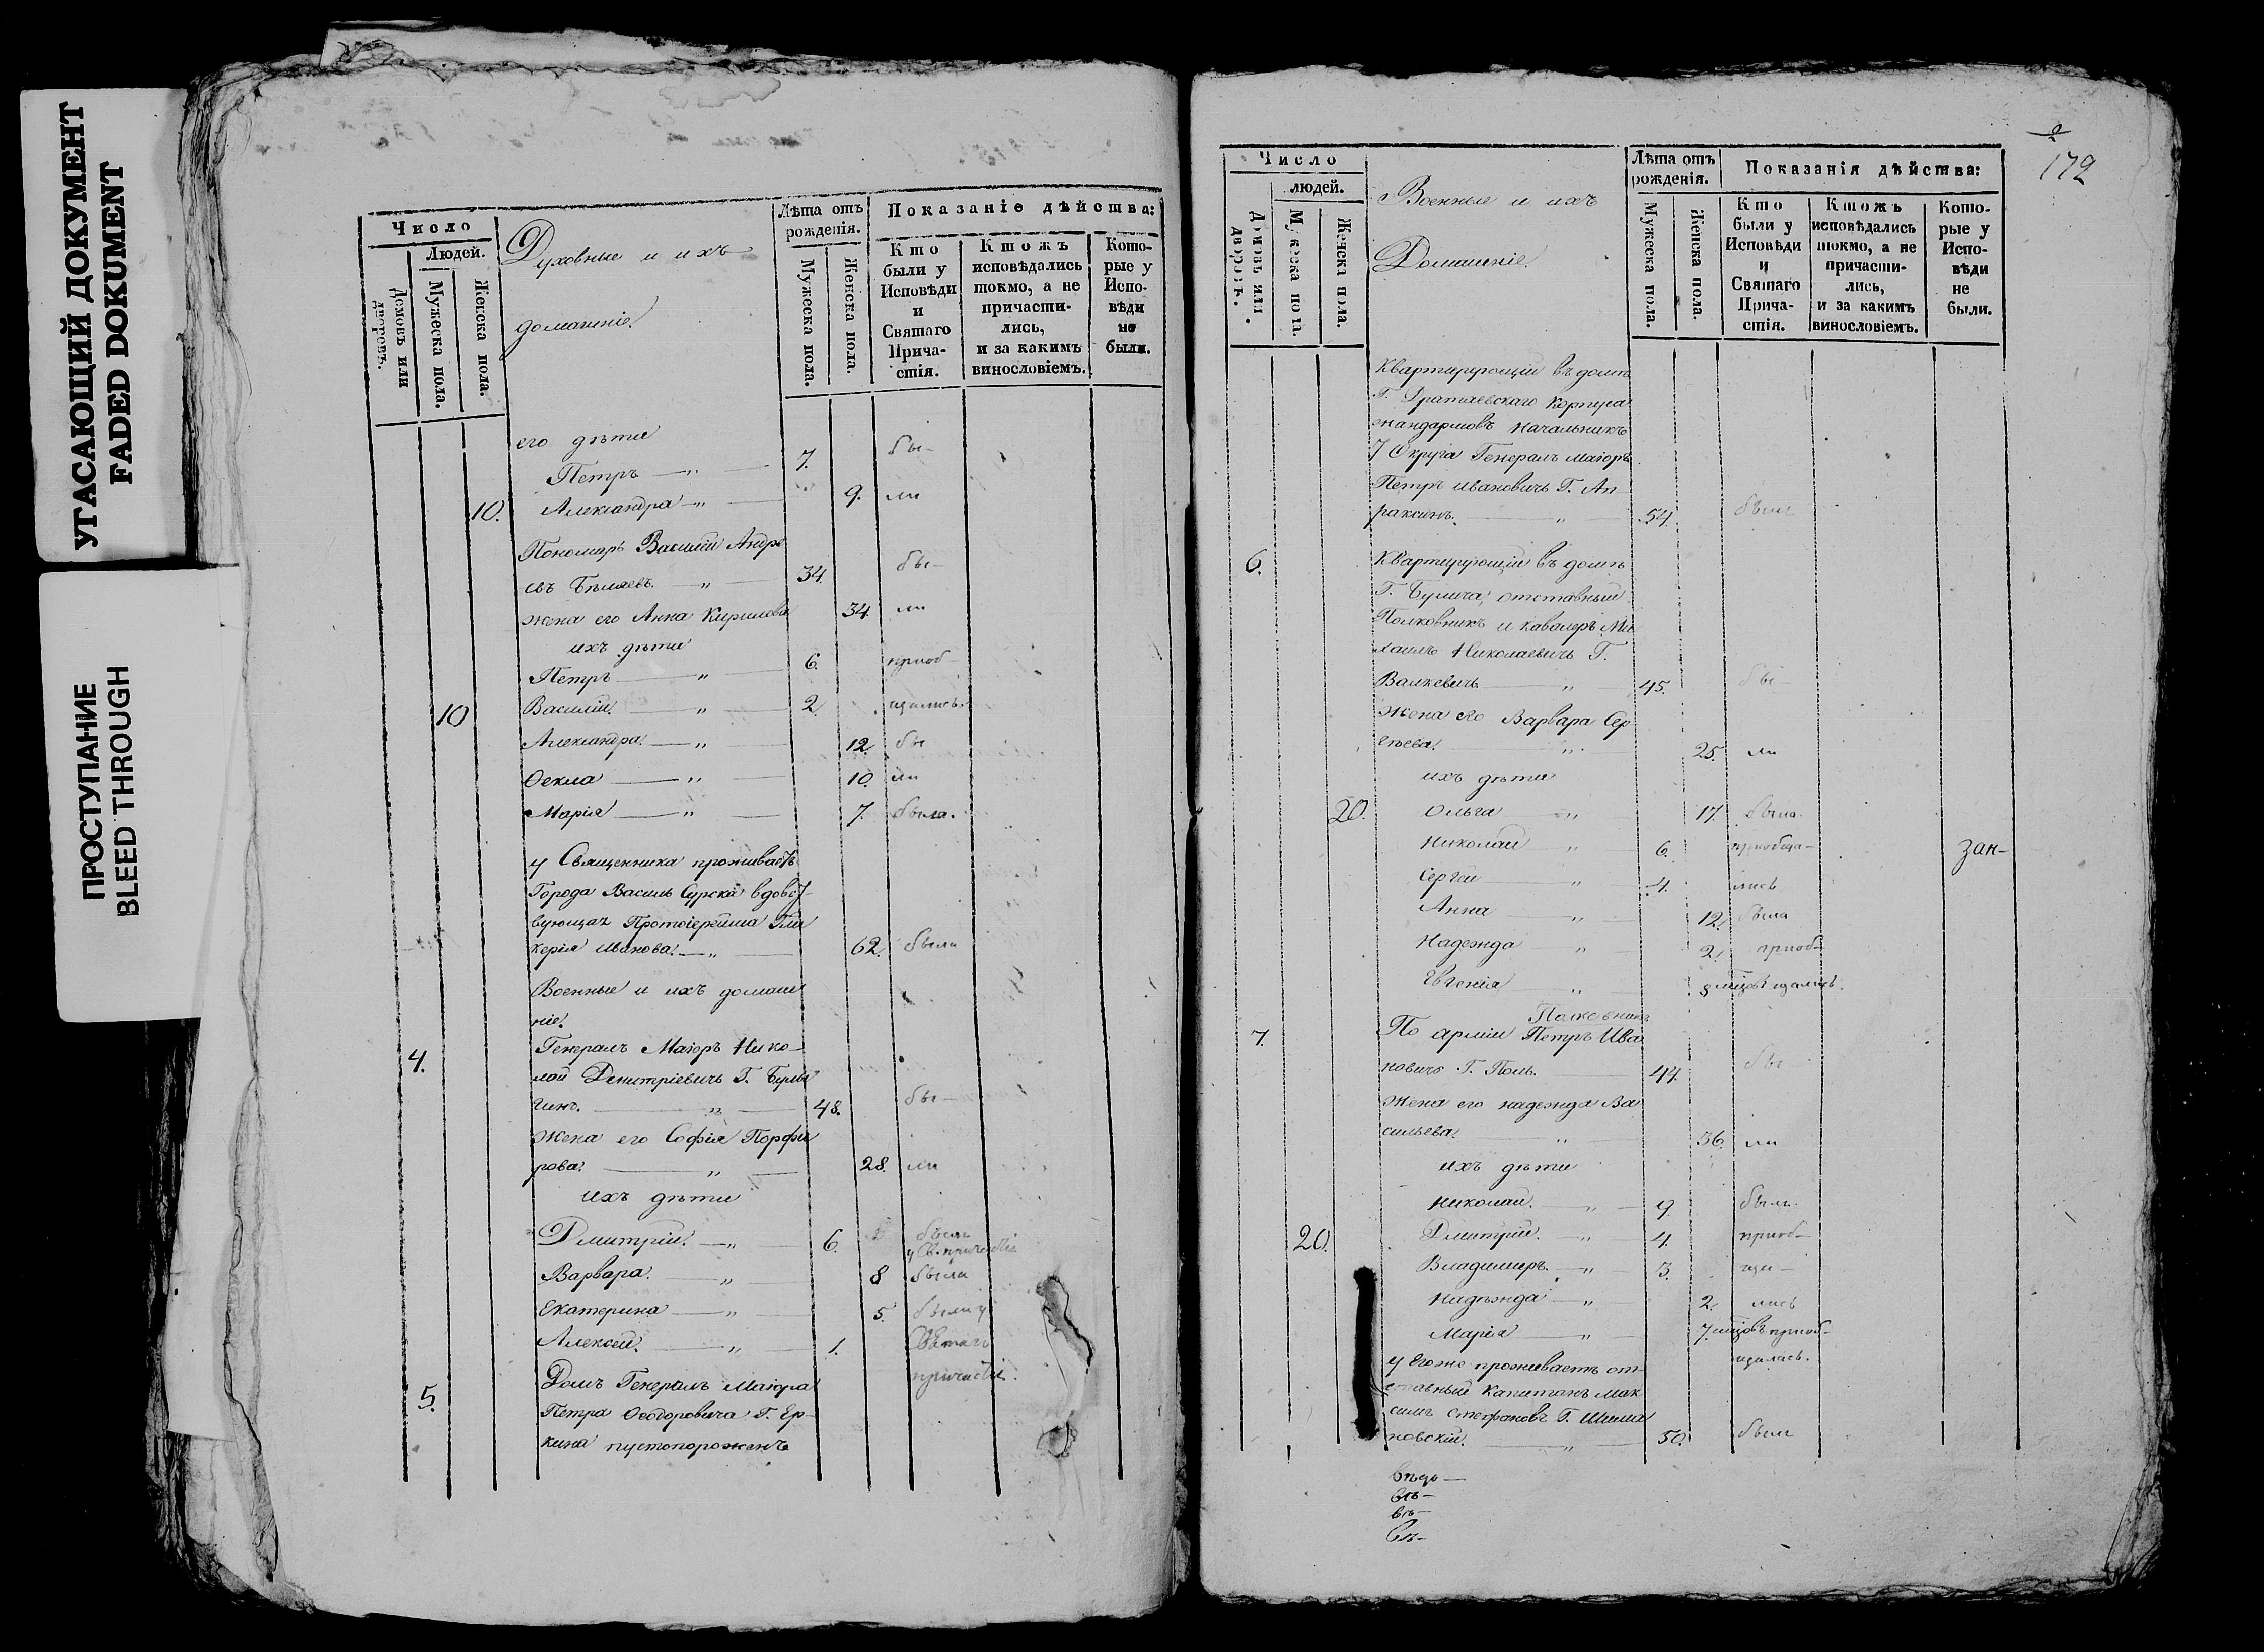 УГАСАЮЩИЙ ДОКУМЕНТ
FADED DOKUMENT
ПРОСТУПАНИЕ
BLEED THROUGH
Число
Людей.
Домовъ или дворовъ.
Мужеска пола.
Женска пола.
Духовные и ихъ
домашніе.
Лѣта отъ рожденія.
Мужеска пола.
Женска пола.
Показаніе дѣйства:
Кто были у Исповѣди и Святаго Прича-стія.
Ктожъ исповѣдались токмо, а не причасти-лись, и за какимъ винословіемъ.
Кото-рые у Испо-вѣди не были.
его дѣти
Петръ — „ — 7. бы-
10. Александра — „ — 9. ли
Пономарь Василій Андре
евъ Бѣляевъ. — „ — 34. бы-
жена его Анна Кирилова 34 ли
ихъ дѣти
Петръ — „ — 6. приоб-
10 Василій. — „ — 2. щались.
Александра. — „ — 12. бы
Ѳекла — „ — 10. ли
Марія — „ — 7. была.
у Священника проживаетъ
Города Василь Сурска вдовст-
вующая Протоіерейша Гли
керія Иванова. — „ — 62. были
Военные и ихъ домаш
ніе.
4. Генералъ Маіоръ Нико-
лай Димитріевичъ Г. Булы
гинъ. — „ — 48. бы-
жена его Софія Порфи
рова. — „ — 28. ли
ихъ дѣти
Дмитрій. — „ — 6. былъ
у Св. причастія
Варвара. — „ 8 была
Екатерина — „ — 5. были у
Алексей. — „ — 1. Святаго
причастія.
5. Домъ Генералъ Маіора
Петра Ѳеодоровича Г. Ер-
кина пустопороженъ
2
172
Число
людей.
Домовъ или дворовъ.
Мужеска пола.
Женска пола.
Военные и ихъ
Домашніе.
Лѣта отъ рожденія.
Мужеска пола.
Женска пола.
Показанія дѣйства:
Кто были у Исповѣди и Святаго Прича-стія.
Ктожъ исповѣдались токмо, а не причасти-лись, и за какимъ винословіемъ.
Кото-рые у Испо-вѣди не были.
Квартирующій въ домѣ
Г. Корпуса
жандармовъ начальникъ
7 Округа Генералъ Маіоръ
Петръ Ивановичъ Г. Ап-
раксинъ. — „ — 54. былъ
6. Квартирующій въ домѣ
Г. Булича, отставный
Полковникъ и кавалеръ Ми
хаилъ Николаевичъ Г.
Валкевичъ — „ — 45. бы-
жена его Варвара Сер
гѣева. — „ 25. ли
ихъ дѣти
20. Ольга „ 17. была.
Николай „ 6. приобща-
зан-
Сергей „ 4. лись
Анна „ 12. была
Надежда „ 2. приоб-
Евгенія „ 8 мѣцовъ щались.
Полковникъ
7. По арміи Петръ Ива
новичъ Г. Поль. — 44. бы
жена его надежда Ва
сильева. — „ — 36. ли
ихъ дѣти
николай. — „ — 9. былъ.
20. Дмитрій. — „ 4. приоб-
Владимиръ. — „ 3. ща-
надѣжда — „ 2. лись
Марія — „ 7. мѣцовъ приоб-
щалась.
у Егоже проживаетъ от-
ставный Капитанъ Мак-
симъ степановъ Г. Шима
новскій. „ — 50. былъ